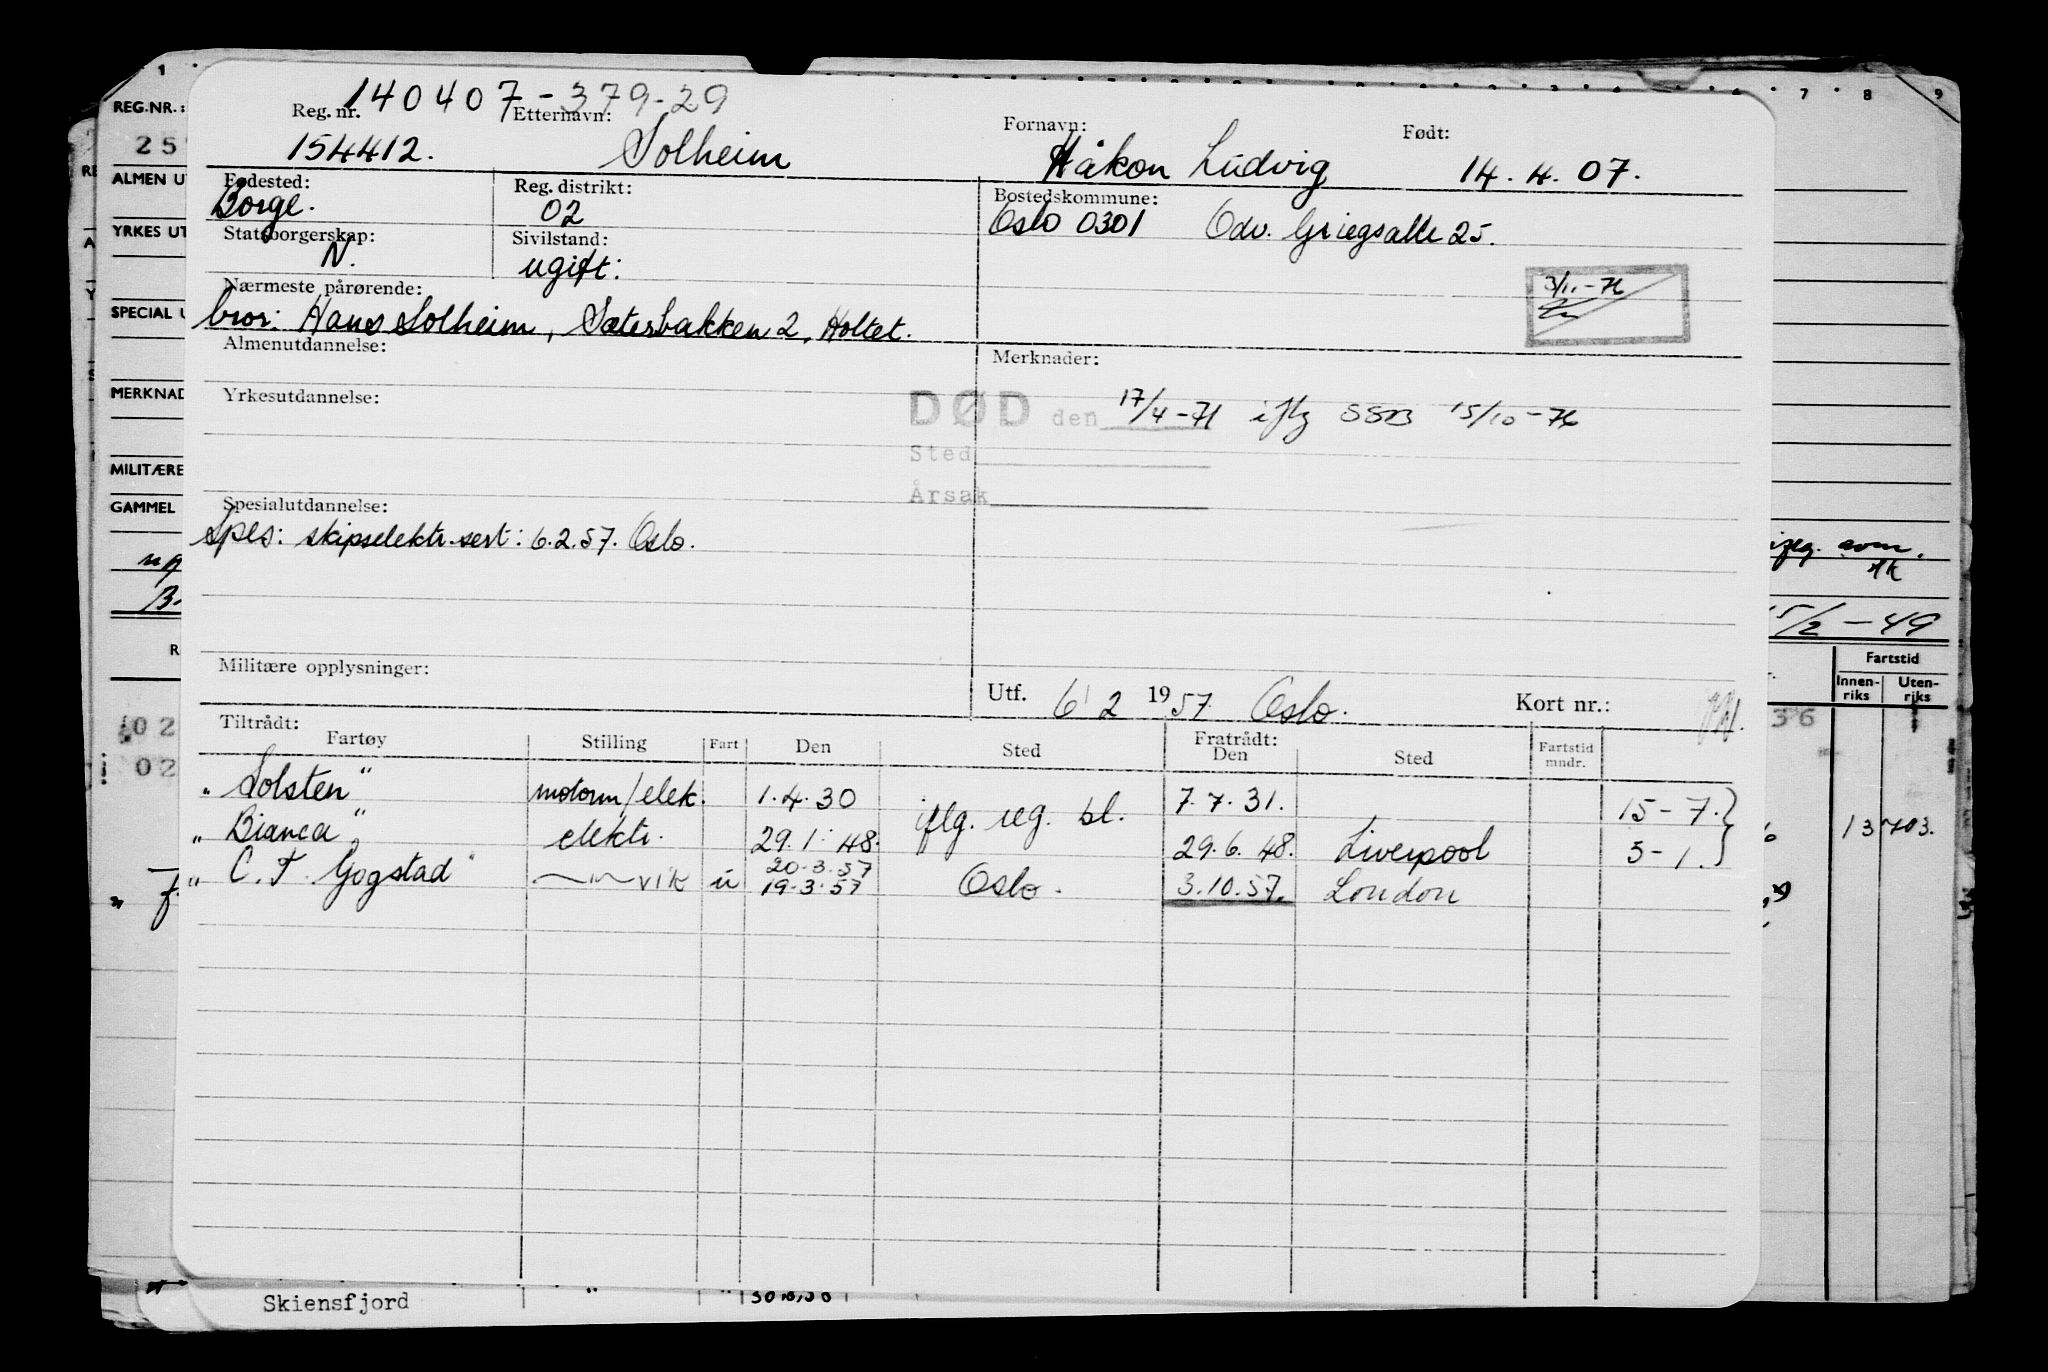 140407-379-29
Reg. nr. Etternavn: Fornavn: Født:
154412. Solheim Håkon Ludvig 14.4.07.
Fødested: Reg. distrikt: Bostedskommune:
Borge. 02 Oslo 0301 Edv. Griegsallé 25.
Statsborgerskap: Sivilstand:
N. ugift:
Nærmeste pårørende:
bror: Hans Solheim, Sæterbakken 2, Holtet.
3/11-76
Almenutdannelse: Merknader:
Yrkesutdannelse:
DØD den 17/4-71 iflg SSB 15/10-76
Sted
Årsak
Spesialutdannelse:
Spes: skipselektr.sert: 6.2.57. Oslo.
Militære opplysninger:
Utf. 6/2 1957 Oslo. Kort nr.:
Tiltrådt: Fratrådt:
Fartøy Stilling Fart Den Sted Den Sted Fartstid mndr.
"Solsten" motorm/elek. 1.4.30 iflg. reg. bl. 7.7.31. 15-7.}
"Bianca" elektr. 29.1.48. 29.6.48. Liverpool 5-1.}
20.3.57
"C.T. Gogstad" —"— vik u 19.3.57 Oslo. 3.10.57. London
Skiensfjord
REG.NR.:
25
ALMEN U
YRKES UT
SPECIAL U
MERKNAD
MILITÆRE
GAMMEL
ug
B.
R
02
02
1
7 8 9
15/2-49
Fartstid
Innen-riks Uten-riks
36
13 703.